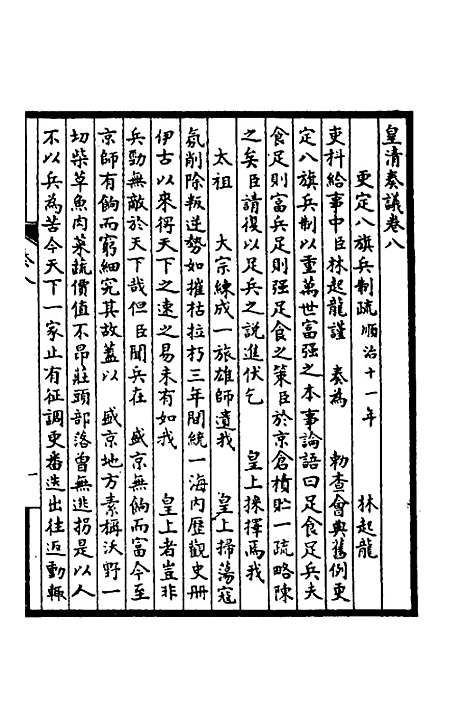 皇清奏議卷八
更定八旗兵制疏 順治十一年 林起龍
吏科給事中臣林起龍謹 奏為 勅查會典舊例更
定八旗兵制以重萬世富强之本事論語曰足食足兵夫
食足則富兵足則强足食之策臣於京倉積貯一疏略陳
之矣臣請復以足兵之說進伏乞 皇上採擇焉我
太祖 太宗練成一旅雄師遺我 皇上掃蕩寇
氛削除叛逆勢如摧枯拉朽三年間統一海內歷觀史册
伊古以來得天下之速之易未有如我 皇上者豈非
兵勁無敵於天下哉但臣聞兵在 盛京無餉而富今至
京師有餉而窮細究其故蓋以 盛京地方素稱沃野一
切柴草魚肉菜蔬價值不昂莊頭部落曾無逃拐是以人
不以兵為苦今天下一家止有征調更番迭出往返動輒